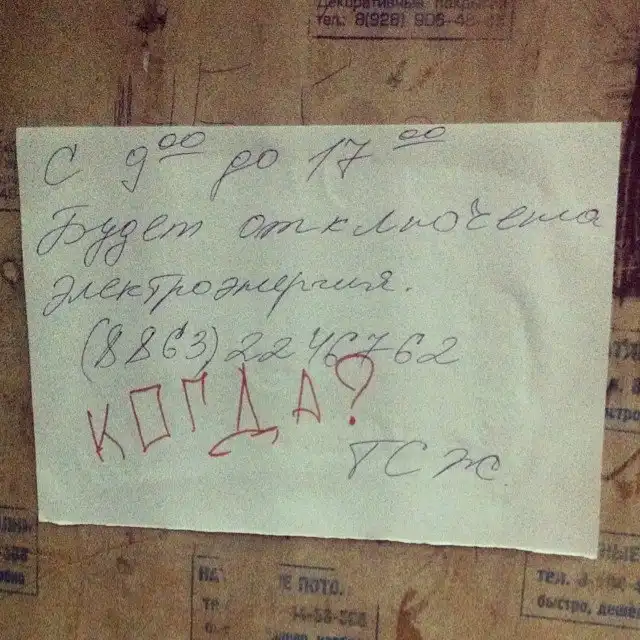 Декоративные
тел.: 8(928) 906-
С 9⁰⁰ до 17⁰⁰
Будет отключена
электроэнергия.
(8863) 2246762
КОГДА?
ТСЖ
ПОТО.
тел.
быстро,